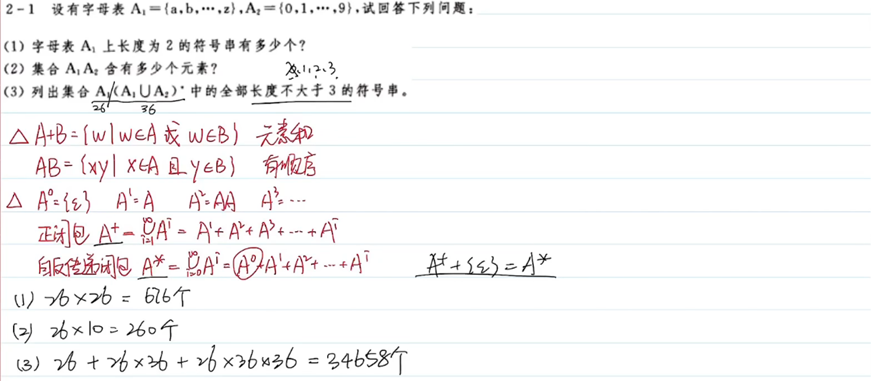 2-1 设有字母表 A₁={a,b,…,z},A₂={0,1,…,9},试回答下列问题:
(1) 字母表 A₁ 上长度为 2 的符号串有多少个?
(2) 集合 A₁A₂ 含有多少个元素?
1、2、3
(3) 列出集合 A₁(A₁∪A₂)* 中的全部长度不大于 3 的符号串。
26 36
△ A+B={w|w∈A 或 w∈B} 元素和
AB={xy| x∈A 且 y∈B} 有顺序
△ A⁰={ε} A¹=A A²=AA A³=…
正闭包 A⁺=⋃ᵢ₌₁^∞ Aⁱ = A¹+A²+A³+…+Aⁱ
自反传递闭包 A*=⋃ᵢ₌₀^∞ Aⁱ=A⁰+A¹+A²+…+Aⁱ A⁺+{ε}=A*
(1) 26×26 = 676个
(2) 26×10=260个
(3) 26 + 26×36 + 26×36×36 = 34658个